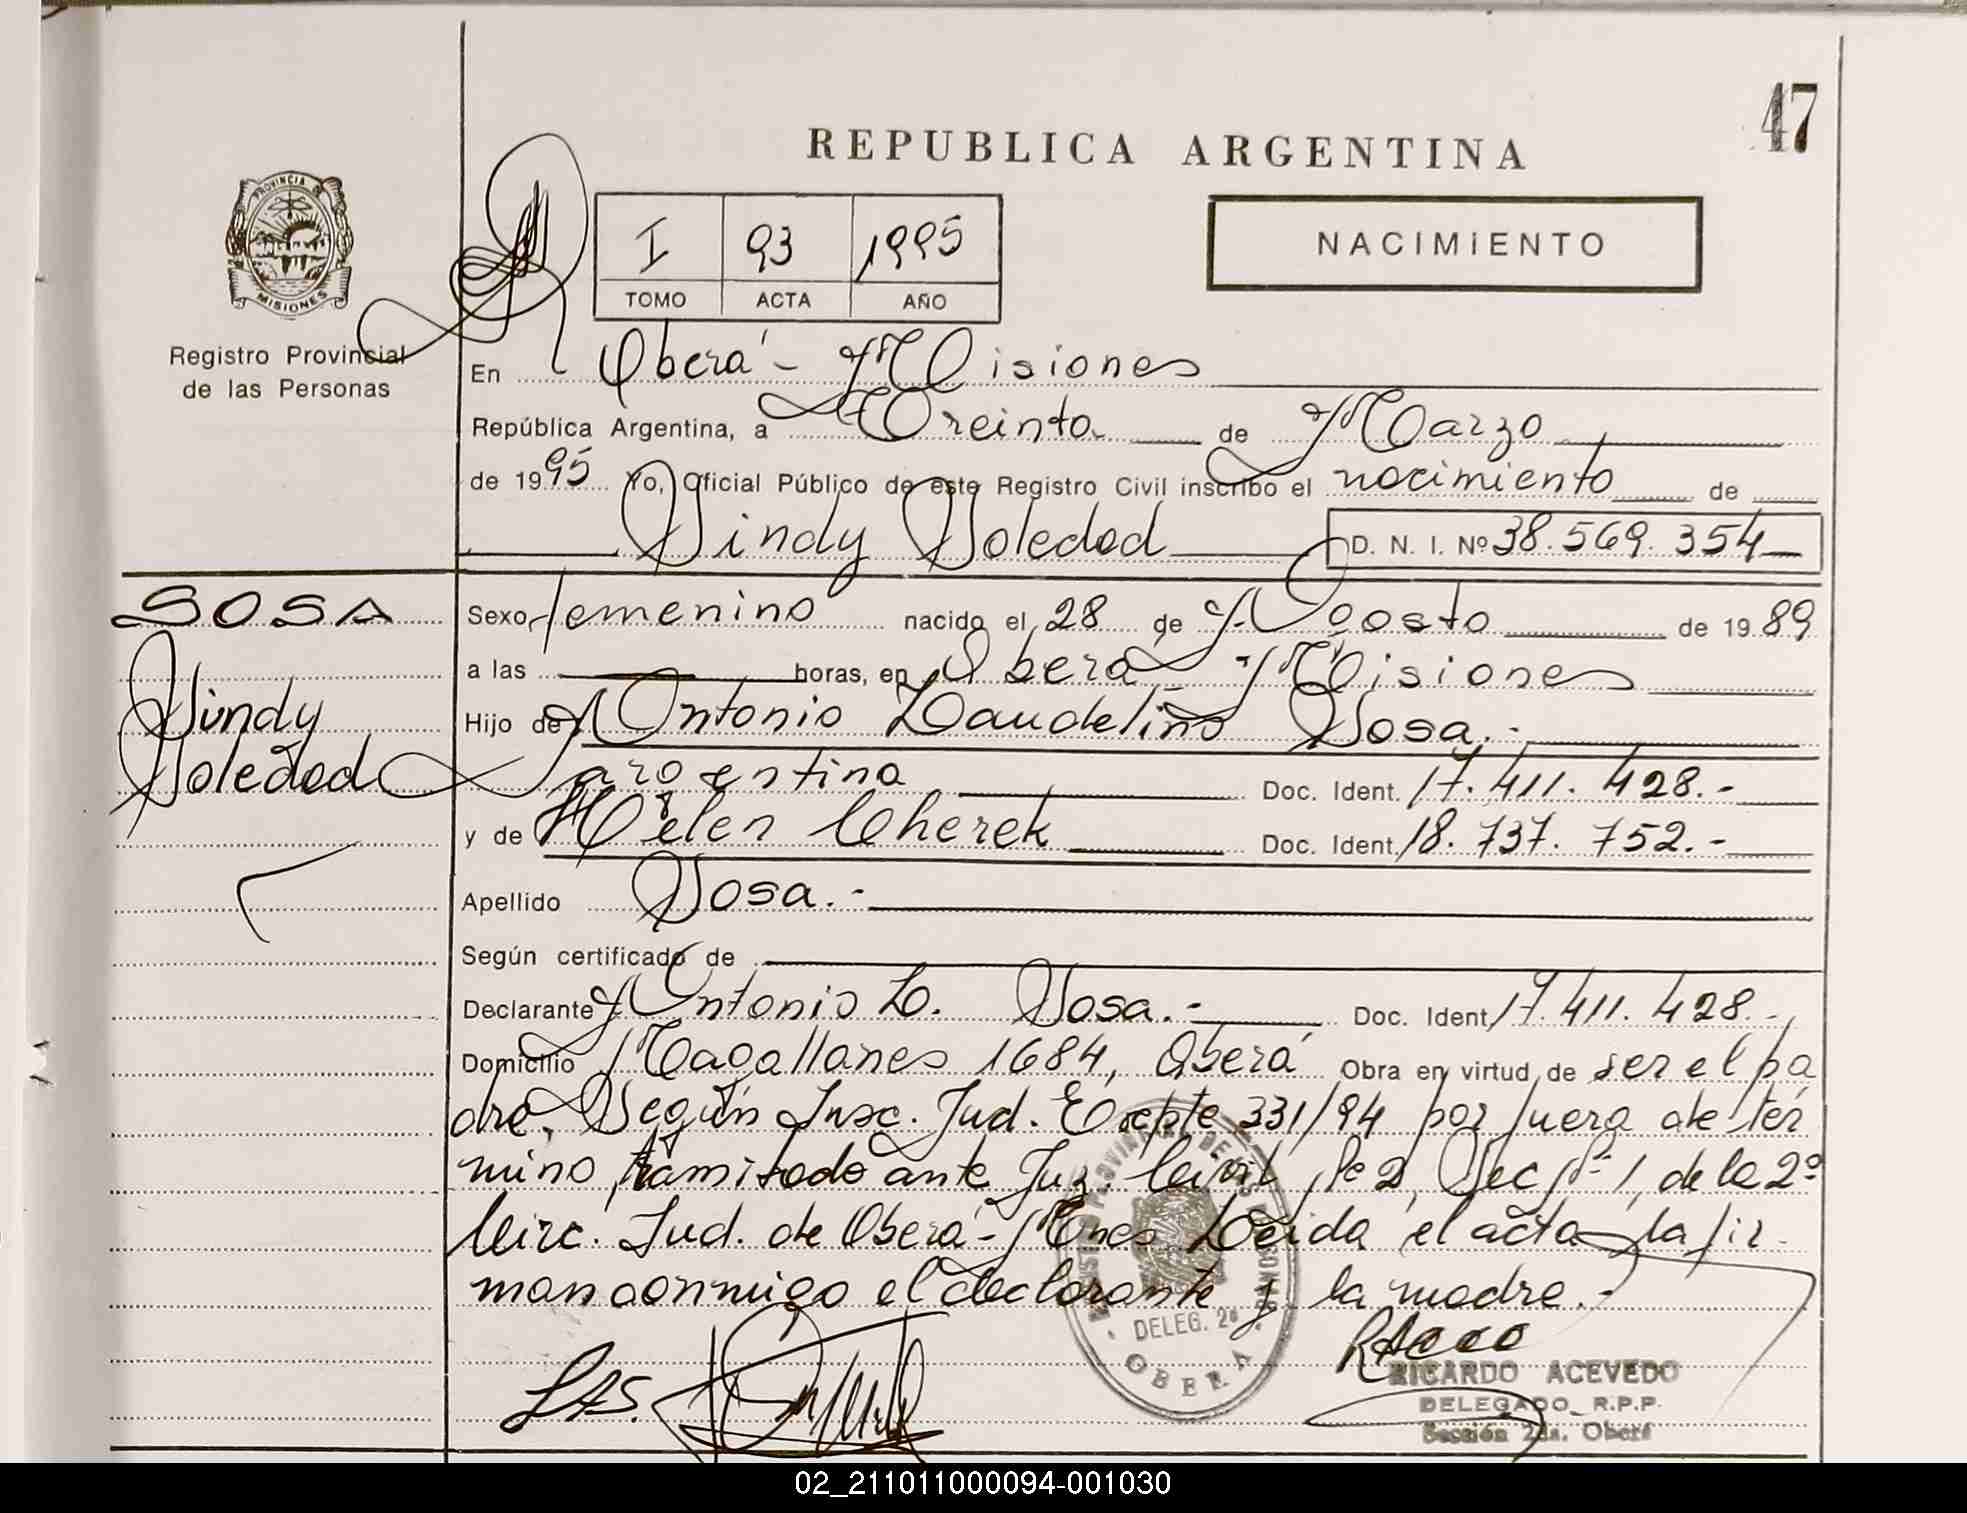 47
REPUBLICA ARGENTINA
PROVINCIA DE
MISIONES
Registro Provincial
de las Personas
I 93 1995
TOMO ACTA AÑO
NACIMIENTO
En Oberá - Misiones
República Argentina, a Treinta de Marzo
de 1995 Yo, Oficial Público de este Registro Civil inscribo el nacimiento de
Sindy Soledad D. N. I. Nº 38.569.354
SOSA
Sindy
Soledad
Sexo femenino nacido el 28 de Agosto de 1989
a las horas, en Oberá Misiones
Hijo de Antonio Laudelino Sosa.-
argentina Doc. Ident. 17.411.428.-
y de Helen Cherek Doc. Ident. 18.737.752.-
Apellido Sosa.-
Según certificado de
Declarante Antonio L. Sosa.- Doc. Ident 17.411.428.-
Domicilio Magallanes 1684, Oberá Obra en virtud de ser el pa
dre. Según Insc. Jud. Expte 331/94 por fuera de tér
mino, tramitado ante Juz. Civil Sec Nº 1, de la 2º
Circ. Jud. de Oberá - Mnes Leída el acta la fir
man conmigo el declarante y la madre.-
DELEG. 2ª
OBERA
LAS.
RICARDO ACEVEDO
DELEGADO R.P.P.
Sección 2da. Oberá
02_211011000094-001030